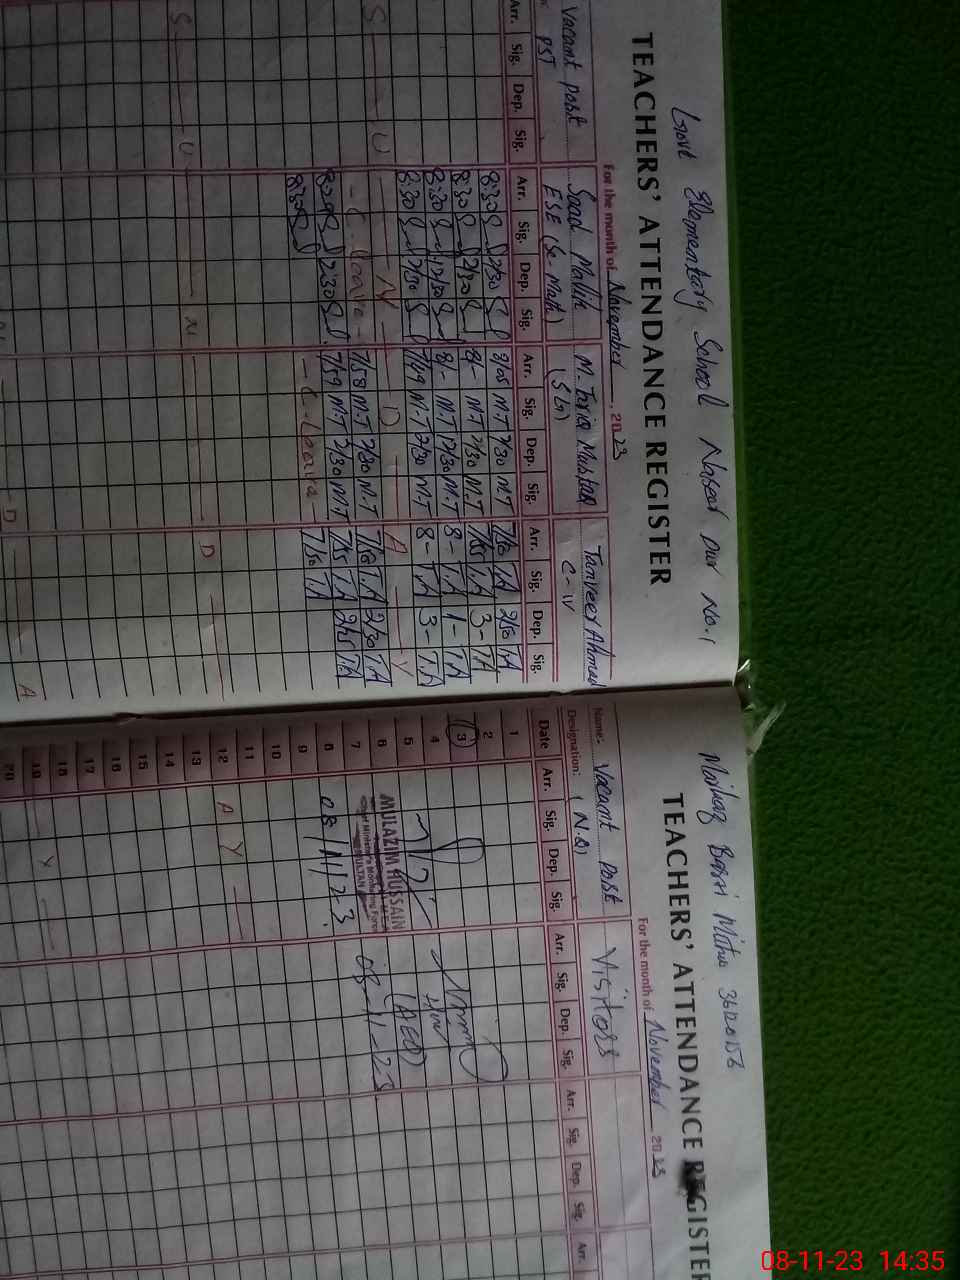 Govt Elementary School Naseer Pur No.1
TEACHERS' ATTENDANCE REGISTER
For the month of November, 2023
Vacant post
PST
Saad Mallik
ESE (Sc-Math)
M. Tariq Mushtaq
Tanveer Ahmad
C-IV
Arr. Sig. Dep. Sig. Arr. Sig. Dep. Sig. Arr. Sig. Dep. Sig. Arr. Sig. Dep. Sig.
8:30 2/30 8/05 M.T 2/30 M.T 7/50 T.A 2/50 T.A
8:30 2/30 8/- M.T 2/30 M.T 7/55 T.A 3- T.A
8:30 12/30 8/- M.T 12/30 M.T 8- T.A 1- T.A
8:30 2/30 7/49 M.T 2/30 M.T 8- T.A 3- T.A
S U N D A Y
- C - leave - 7/58 M.T 2/30 M.T 7/50 T.A 2/30 T.A
8:20 2:30 7/59 M.T 2/30 M.T 7/55 T.A 2/45 T.A
8:30 - C - Leave - 7/50 T.A
S U N D
D A
TEACHERS' ATTENDANCE REGISTER
For the month of November 2023
Name: Vacant Post
Visitors
Designation: (N.Q)
Date Arr. Sig. Dep. Sig. Arr. Sig. Dep. Sig. Arr. Sig. Dep. Sig. Arr.
1
2
3
4
5
6
7
8
9
10
11
12 A Y
13
14
15
16
17
18
19 Y
20
MULAZIM HUSSAIN
Chief Minister's Monitoring Force
MULTAN
08/11/23.
(AEO)
08-11-23.
08-11-23 14:35